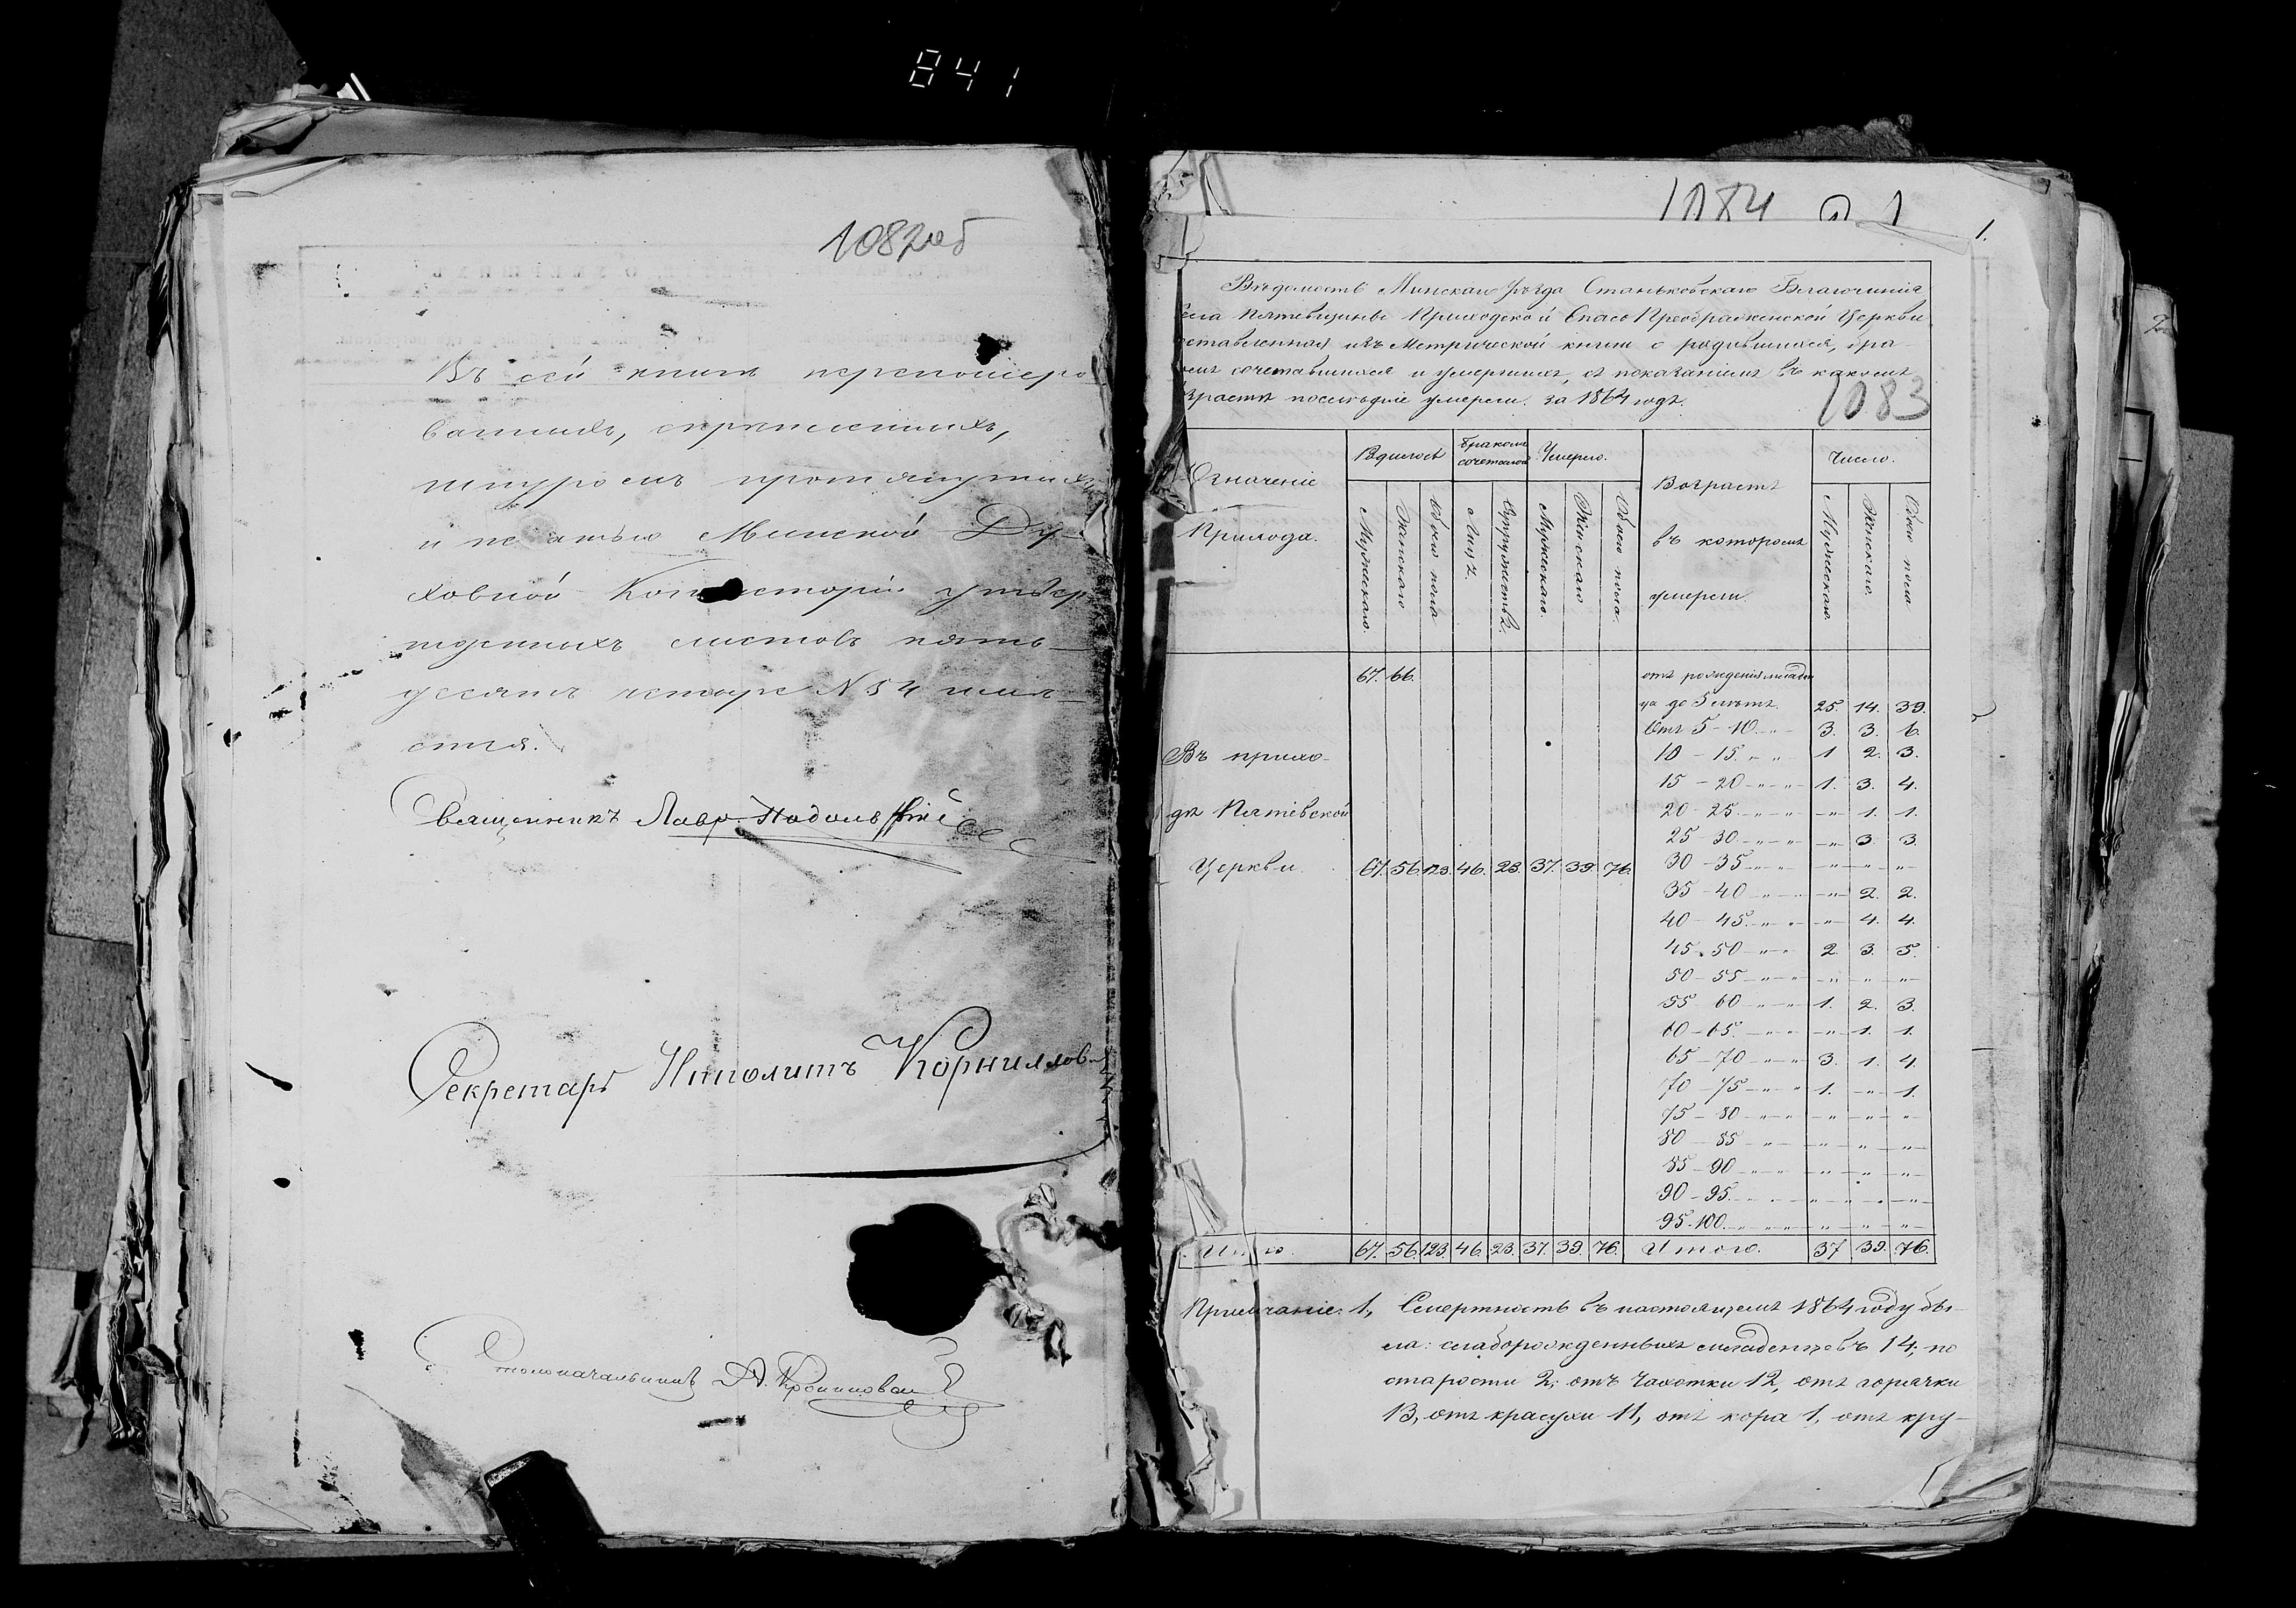 841
1082об
Въ сей книгѣ перенумеро-
ванныхъ, скрѣпленныхъ,
шнуромъ протянутыхъ
и печатью Минской Ду-
ховной Консисторіи утвер-
жденныхъ листовъ пять-
десятъ четыре N 54 имѣ-
ется.
Священникъ Лавр.
Секретарь Ипполитъ Корнилов
Столоначальникъ А.
1084
1.
Вѣдомость Минскаго Уѣзда Станьковскаго Благочинія
села Пятевщины Приходской Спасо Преображенской Церкви
составленная изъ Метрической книги о родившихся, бра-
комъ сочетавшихся и умершихъ, съ показаніемъ въ какомъ
возрастѣ послѣдніе умерли. за 1864 годъ.
1083
Означеніе Прихода.
Родилось
Бракомъ сочеталось
Умерло.
Возрастъ въ которомъ умерли.
Число.
Мужескаго. Женскаго Обоего пола Лицъ. Супружествъ. Мужескаго. Женскаго Обоего пола. Мужескаго. Женскаго. Обоего пола
67. 66. отъ рожденія младен
ца до 5 лѣтъ. 25. 14. 39.
Отъ 5 - 10 -„- 3. 3. 6.
Въ прихо- 10 - 15. „ „ 1 2. 3.
15 - 20 -„-„- 1. 3. 4.
дѣ Пятевской 20 - 25. -„-„- -„- 1. 1.
25 - 30. -„-„- -„- 3. 3.
Церкви. 67. 56. 123. 46. 23. 37. 39. 76. 30 - 35 -„-„- -„- -„- -„-
35 - 40 -„-„- -„- 2. 2.
40 - 45. -„-„- -„- 4. 4.
45 - 50 -„-„- 2. 3. 5.
50 - 55 -„-„- -„- „ -„-
55 - 60 -„-„- 1. 2. 3.
60 - 65. -„-„- -„- 1. 1.
65 - 70 -„-„- 3. 1. 4.
70 - 75 -„-„- 1. -„- 1.
75 - 80 -„-„- -„- -„- -„-
80 - 85 -„-„- -„- -„- -„-
85 - 90 -„-„- -„- -„- -„-
90 - 95. -„-„- -„- -„- -„-
95 - 100. -„-„- -„- -„- -„-
Итого. 67. 56. 123. 46. 23. 37. 39. 76. Итого. 37 39. 76.
Примѣчаніе: 1, Смертность въ настоящемъ 1864 году бы-
ла: слаборожденныхъ младенцевъ 14; по
старости 2; отъ чахотки 12, отъ горячки
13, отъ красухи 11, отъ кора 1, отъ кру-